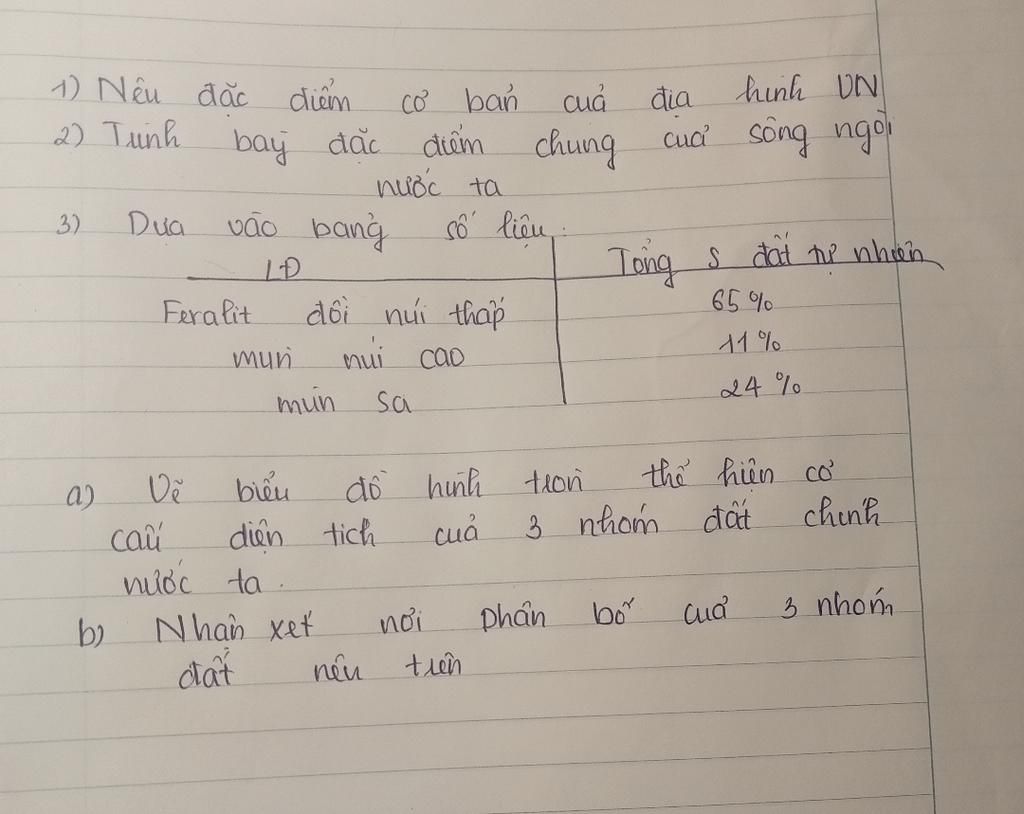 1) Nêu đặc điểm cơ bản của địa hình VN
2) Trình bày đặc điểm chung của sông ngòi
nước ta
3) Dựa vào bảng số liệu:
LĐ Tổng S đất tự nhiên
Feralit đồi núi thấp 65%
mùn núi cao 11%
mùn sa 24%
a) Vẽ biểu đồ hình tròn thể hiện cơ
cấu diện tích của 3 nhóm đất chính
nước ta.
b) Nhận xét nơi phân bố của 3 nhóm
đất nêu trên